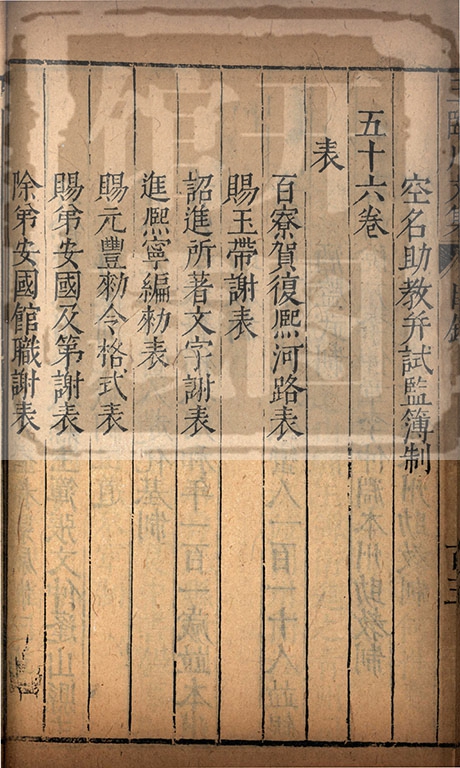 空名助教并試監簿制
五十六卷
表
百寮賀復熈河路表
賜玉帶謝表
詔進所著文字謝表
進熈寧編勑表
賜元豐勑令格式表
賜弟安國及第謝表
除弟安國館職謝表